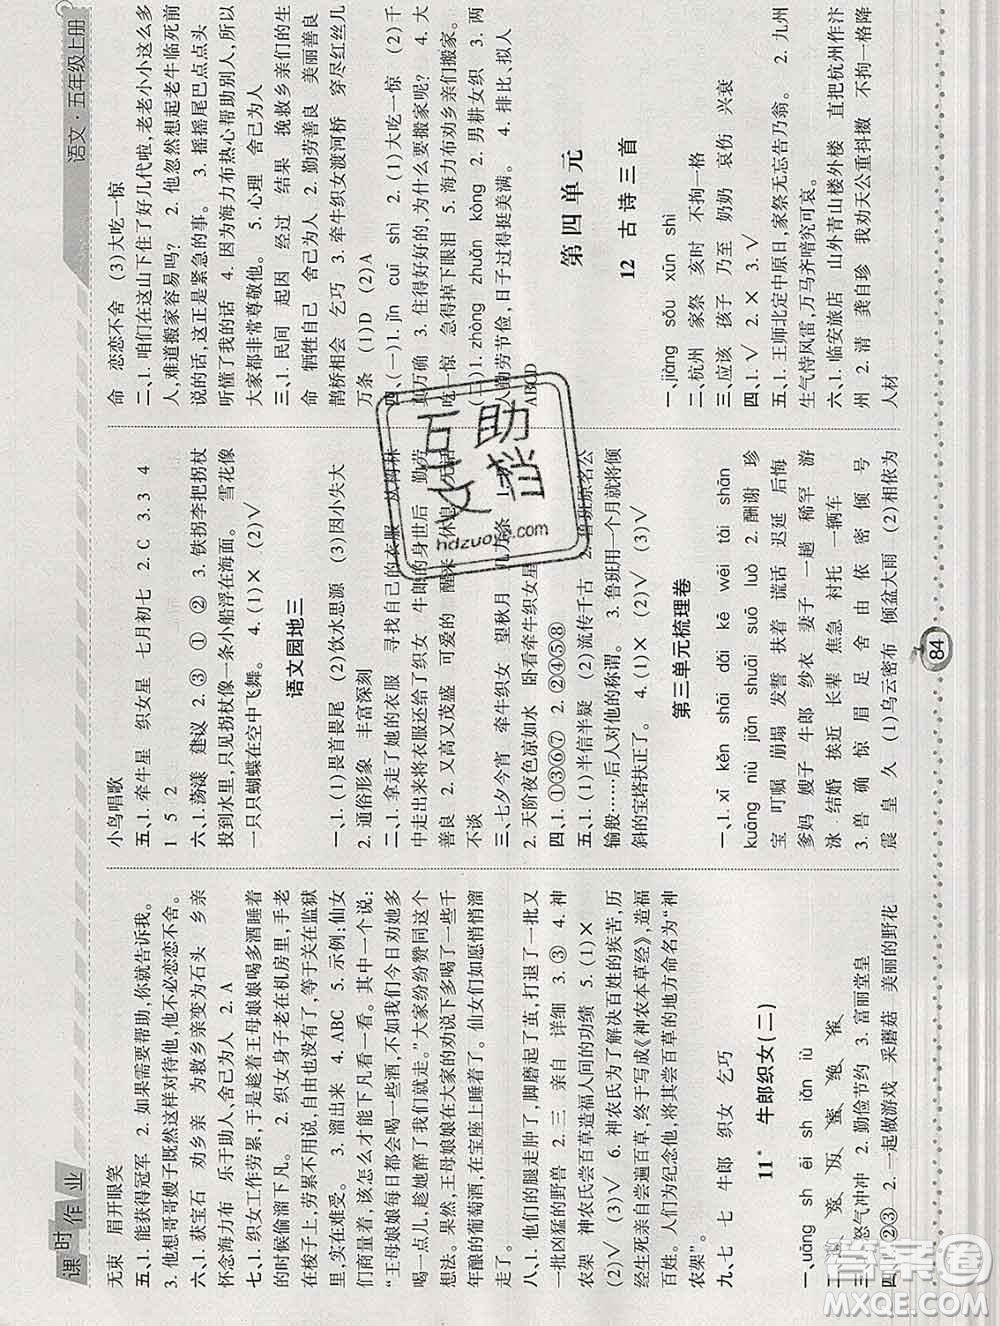 课时作业
语文·五年级上册
无束 眉开眼笑
五、1. 能获得冠军 2. 如果需要帮助,你就告诉我。
3. 他想哥哥嫂子既然这样对待他,他不必恋恋不舍。
六、1. 获宝石 劝乡亲 为救乡亲变为石头 乡亲
怀念海力布 乐于助人、舍己为人 2. A
七、1. 织女工作劳累,于是趁着王母娘娘喝多酒睡着
的时候偷溜下凡。 2. 织女身子老在机房里,手老
在梭子上,劳累不用说,自由也没有了,等于关在监狱
里,实在难受。 3. 溜出来 4. ABC 5. 示例:仙女
商量着,该怎么才能下凡看一看。其中一个说:
“王母娘娘每日都会喝一些酒,我们今日劝她多
喝一点儿,趁她醉了我们就走。”大家纷纷赞同这个
想法。果然,王母娘娘在大家的劝说下多喝了一些千
年酿的葡萄酒,在宝座上睡着了。仙女们如愿悄悄溜
走了。
八、1. 他们的腿走肿了,脚磨起了茧,打退了一批又
一批凶猛的野兽 2. 三 亲自 详细 3. ③ 4. 神
农架 神农氏尝百草造福人间的功绩 5. (1)×
(2)√ (3)√ 6. 神农氏为了解决百姓的疾苦,历
经生死亲自尝遍百草,终于写成《神农本草经》,造福
百姓。人们为纪念他,将其尝百草的地方命名为“神
农架”。
九、七 七 牛郎 织女 乞巧
11* 牛郎织女(二)
一、uāng sh ēi sh iān iù
三、1. 怒气冲冲 2. 勤俭节约 3. 富丽堂皇
四、1. ②③ 2. 一起做游戏 采蘑菇 美丽的野花
小鸟唱歌
五、1. 牵牛星 织女星 七月初七 2. C 3. 3 4
1 5 2
六、1. 荡漾 建议 2. ③ ① ② 3. 铁拐李把拐杖
投到水里,只见拐杖像一条小船浮在海面。 雪花像
一只只蝴蝶在空中飞舞。 4. (1)× (2)√
语文园地三
一、1. (1)畏首畏尾 (2)饮水思源 (3)因小失大
2. 通俗形象 丰富深刻
二、1. 拿走了她的衣服 寻找自己的衣服 从树林
中走出来将衣服还给了织女 牛郎的身世后 勤劳
善良 2. 高又茂盛 可爱的 醒来
不谈
三、七夕今宵 牵牛织女 望秋月
2. 天阶夜色凉如水 卧看牵牛织女星
四、1. ①③⑥⑦ 2. ②④⑤⑧
五、1. (1)半信半疑 (2)流传千古 2. 鲁班原名公
输般……后人对他的称谓。 3. 鲁班用一个月就将倾
斜的宝塔扶正了。 4. (1)× (2)√ (3)√
第三单元梳理卷
一、1. xī kěn shāi dǎi kē wèi tài shān
kuāng niù jiǎn shuāi suō luò 2. 酬谢 珍
宝 叮嘱 崩塌 发誓 扶着 谎话 迟延 后悔
爹妈 嫂子 牛郎 纱衣 妻子 一趟 稀罕 游
泳 结婚 挨近 长辈 焦急 衬托 一辆车
3. 兽 确 惊 眉 足 舍 由 依 密 倾 号
震 皇 久 (1)乌云密布 倾盆大雨 (2)相依为
命 恋恋不舍 (3)大吃一惊
二、1. 咱们在这山下住了好几代啦,老老小小这么多
人,难道搬家容易吗? 2. 他忽然想起老牛临死前
说的话,这正是紧急的事。 3. 摇摇尾巴点点头
听懂了我的话 4. 因为海力布热心帮助别人,所以
大家都非常尊敬他。 5. 心理 舍己为人
三、1. 民间 起因 经过 结果 挽救乡亲们的生
命 牺牲自己 舍己为人 2. 勤劳善良 美丽善良
鹊桥相会 乞巧 3. 牵牛织女渡河桥 穿尽红丝几
万条 (1)D (2)A
四、(一)1. jīn cuì shì 2. (1)大吃一惊 (2)千
真万确 3. 住得好好的,为什么要搬家呢? 4. 大
吃一惊 急得掉下眼泪 5. 海力布劝乡亲们搬家。
(二)1. zhòng zhuǎn kòng 2. 男耕女织 3. 两
人勤劳节俭,日子过得挺美满。 4. 排比、拟人
ABCD
第四单元
12 古诗三首
一、jiāng sǒu xūn shì
二、杭州 家祭 亥时 不拘一格
三、应该 孩子 乃至 奶奶 哀伤 兴衰
四、1. √ 2. × 3. √
五、1. 王师北定中原日,家祭无忘告乃翁。 2. 九州
生气恃风雷,万马齐喑究可哀。
六、1. 临安旅店 山外青山楼外楼 直把杭州作汴
州 2. 清 龚自珍 我劝天公重抖擞 不拘一格降
人材
84
hdzuoye.com
答案圈
MXQE.COM